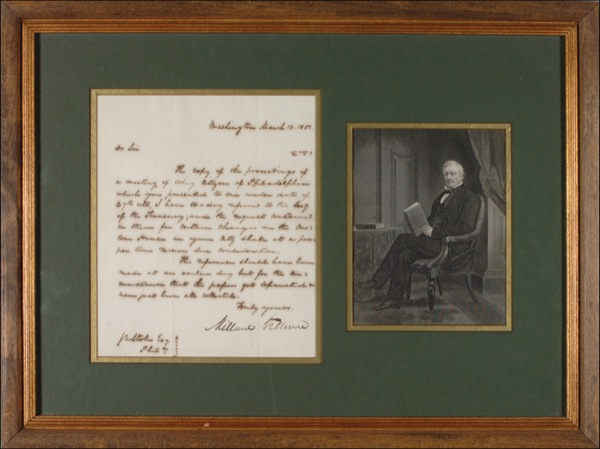 Washington March 10. 1851.
Dr Sir
The copy of the proceedings of
a meeting of Whig Citizens of Philadelphia
which you presented to me under date of
27th ult, I have to-day referred to the Secy
of the Treasury, and the request contained
in them for certain changes in the Cus-
tom House in your City shall at a pro-
per time receive due consideration.
This reference should have been
made at an earlier day but for the cir-
cumstance that the papers got separated &
have just been collected.
Truly yours.
Millard Fillmore
Esq
Phila